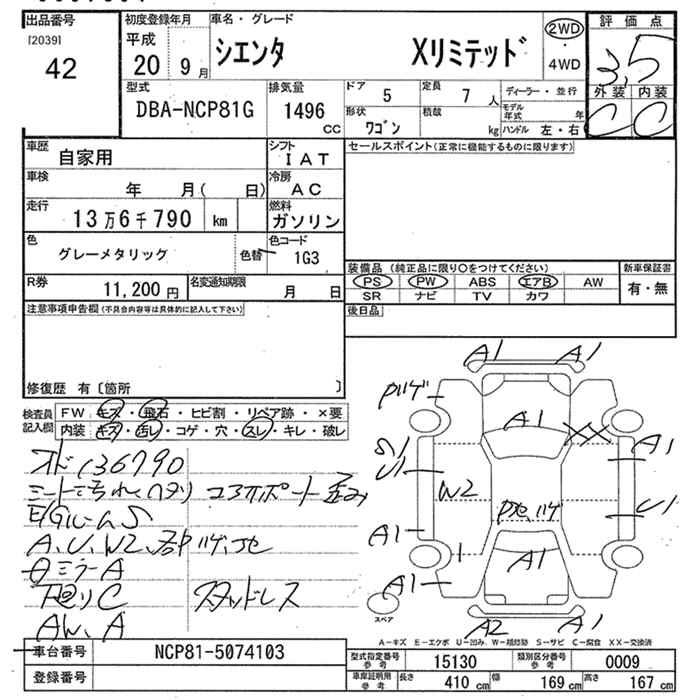 出品番号
[2039]
42
初度登録年月
平成
20 9月
車名・グレード
シエンタ Xリミテッド
2WD
・
4WD
評価点
3.5
外装 内装
C C
型式
DBA-NCP81G
排気量
1496
CC
ドア
5
定員
7人
ディーラー・並行
形状
ワゴン
積載
kg
モデル年式 年
ハンドル 左・右
車歴
自家用
シフト
IAT
車検
年 月( 日)
冷房
AC
走行
13万6千790 km
燃料
ガソリン
色
グレーメタリック
色替
色コード
1G3
R券
11,200円
名変通知期限
月 日
セールスポイント(正常に機能するものに限ります)
装備品 (純正品に限り○をつけてください)
新車保証書
PS PW ABS エアB AW
SR ナビ TV カワ
有・無
後日品
注意事項申告欄(不具合内容等は具体的に記入して下さい)
修復歴 有〔箇所 〕
検査員記入欄
FW キズ・飛石・ヒビ割・リペア跡・×要
内装 キズ・汚レ・コゲ・穴・スレ・キレ・破レ
オド136790
シートヨゴれ
コアサポート歪み
E/Gルーム S
A、U、W2、
ミラーA
下廻りC スタッドレス
AW、A
A1 A1
A1 XX A1
U1 W2 U1
A1
A1 A1
A2 A1
スペア
A-キズ E-エクボ U-凹み W-補修跡 S-サビ C-腐食 XX-交換済
車台番号
NCP81-5074103
登録番号
型式指定番号 参考
15130
類別区分番号 参考
0009
車庫証明用 参考
長さ 410cm 幅 169cm 高さ 167cm